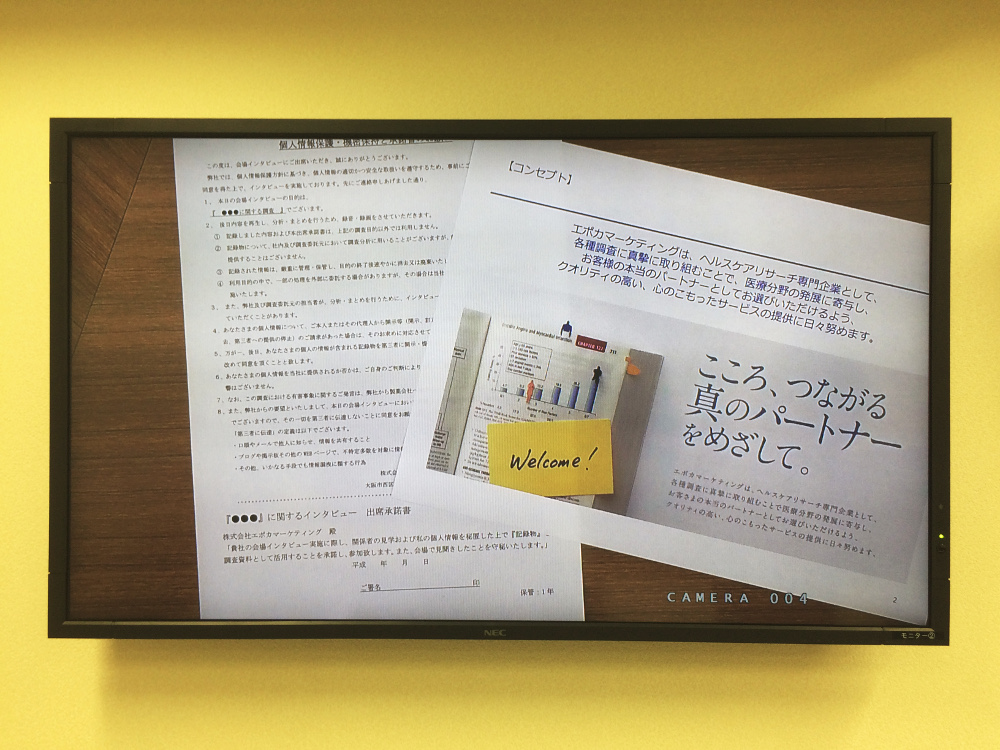 この度は、会場インタビューにご出席いただき、誠にありがとうございます。
弊社では、個人情報保護方針に基づき、個人情報の適切かつ安全な取扱いを遵守するため、事前にご
同意を得た上で、インタビューを実施しております。先にご連絡申しあげました通り、
1、 本日の会場インタビューの目的は、
『 ●●●に関する調査 』でございます。
2、 後日内容を再生し、分析・まとめを行うため、録音・録画をさせていただきます。
① 記録しました内容および本出席承諾書は、上記の調査目的以外では利用しません。
② 記録物について、社内及び調査委託元において調査分析に用いることがございますが、
提供することはございません。
③ 記録された情報は、厳重に管理・保管し、目的の終了後速やかに消去又は廃棄いた
④ 利用目的の中で、一部の処理を外部に委託する場合がありますが、その場合は当社
施いたします。
3、 また、弊社及び調査委託元の担当者が、分析・まとめを行うために、インタビュー
ていただくことがあります。
4、あなたさまの個人情報について、ご本人またはその代理人から開示等（開示、訂
去、第三者への提供の停止）のご請求があった場合は、そのお求めに対応させて
5、万が一、後日、あなたさまの個人情報が含まれる記録物を第三者に開示・
改めて同意を頂くことと致します。
6、あなたさまの個人情報を当社に提供されるか否かは、ご自身のご判断により
響はございません。
7、なお、この調査における有害事象に関するご発言は、弊社から製薬会社へ
8、また、弊社からの要望といたしまして、本日の会場インタビューにおい
でございますので、その一切を第三者に伝達しないことに同意をお願
「第三者に伝達」の定義は以下でございます。
・口頭やメールで他人に知らせ、情報を共有すること
・ブログや掲示板その他のWEBページで、不特定多数を対象に情
・その他、いかなる手段でも情報漏洩に類する行為
株式会
大阪市西区
『●●●』に関するインタビュー 出席承諾書
株式会社エポカマーケティング 殿
「貴社の会場インタビュー実施に際し、関係者の見学および私の個人情報を秘匿した上で『記録物』
調査資料として活用することを承諾し、参加致します。また、会場で見聞きしたことを守秘いたします。」
平成 年 月 日
ご署名 印
保管：1年
【コンセプト】
エポカマーケティングは、ヘルスケアリサーチ専門企業として、
各種調査に真摯に取り組むことで、医療分野の発展に寄与し、
お客様の本当のパートナーとしてお選びいただけるよう、
クオリティの高い、心のこもったサービスの提供に日々努めます。
CHAPTER 122
711
Welcome!
こころ、つながる
真のパートナー
をめざして。
エポカマーケティングは、ヘルスケアリサーチ専門企業として、
各種調査に真摯に取り組むことで医療分野の発展に寄与し、
お客さまの本当のパートナーとしてお選びいただけるよう、
クオリティの高い、心のこもったサービスの提供に日々努めます。
2
CAMERA 004
NEC
モニター②